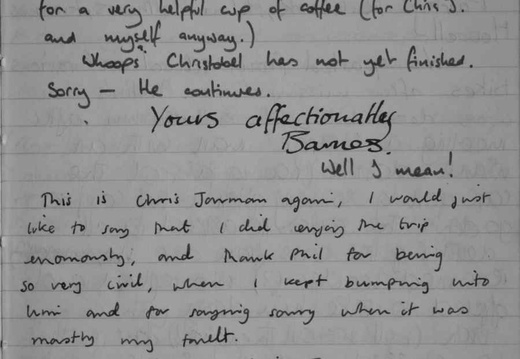 for a very helpful cup of coffee (for Chris J.
and myself anyway.)
Whoops, Christobel has not yet finished.
Sorry — He continues.
Yours affectionately
Barnes.
Well I mean!
This is Chris Jarman again, I would just
like to say that I did enjoy the trip
enormously, and thank Phil for being
so very civil, when I kept bumping into
him and for saying sorry when it was
mostly my fault.